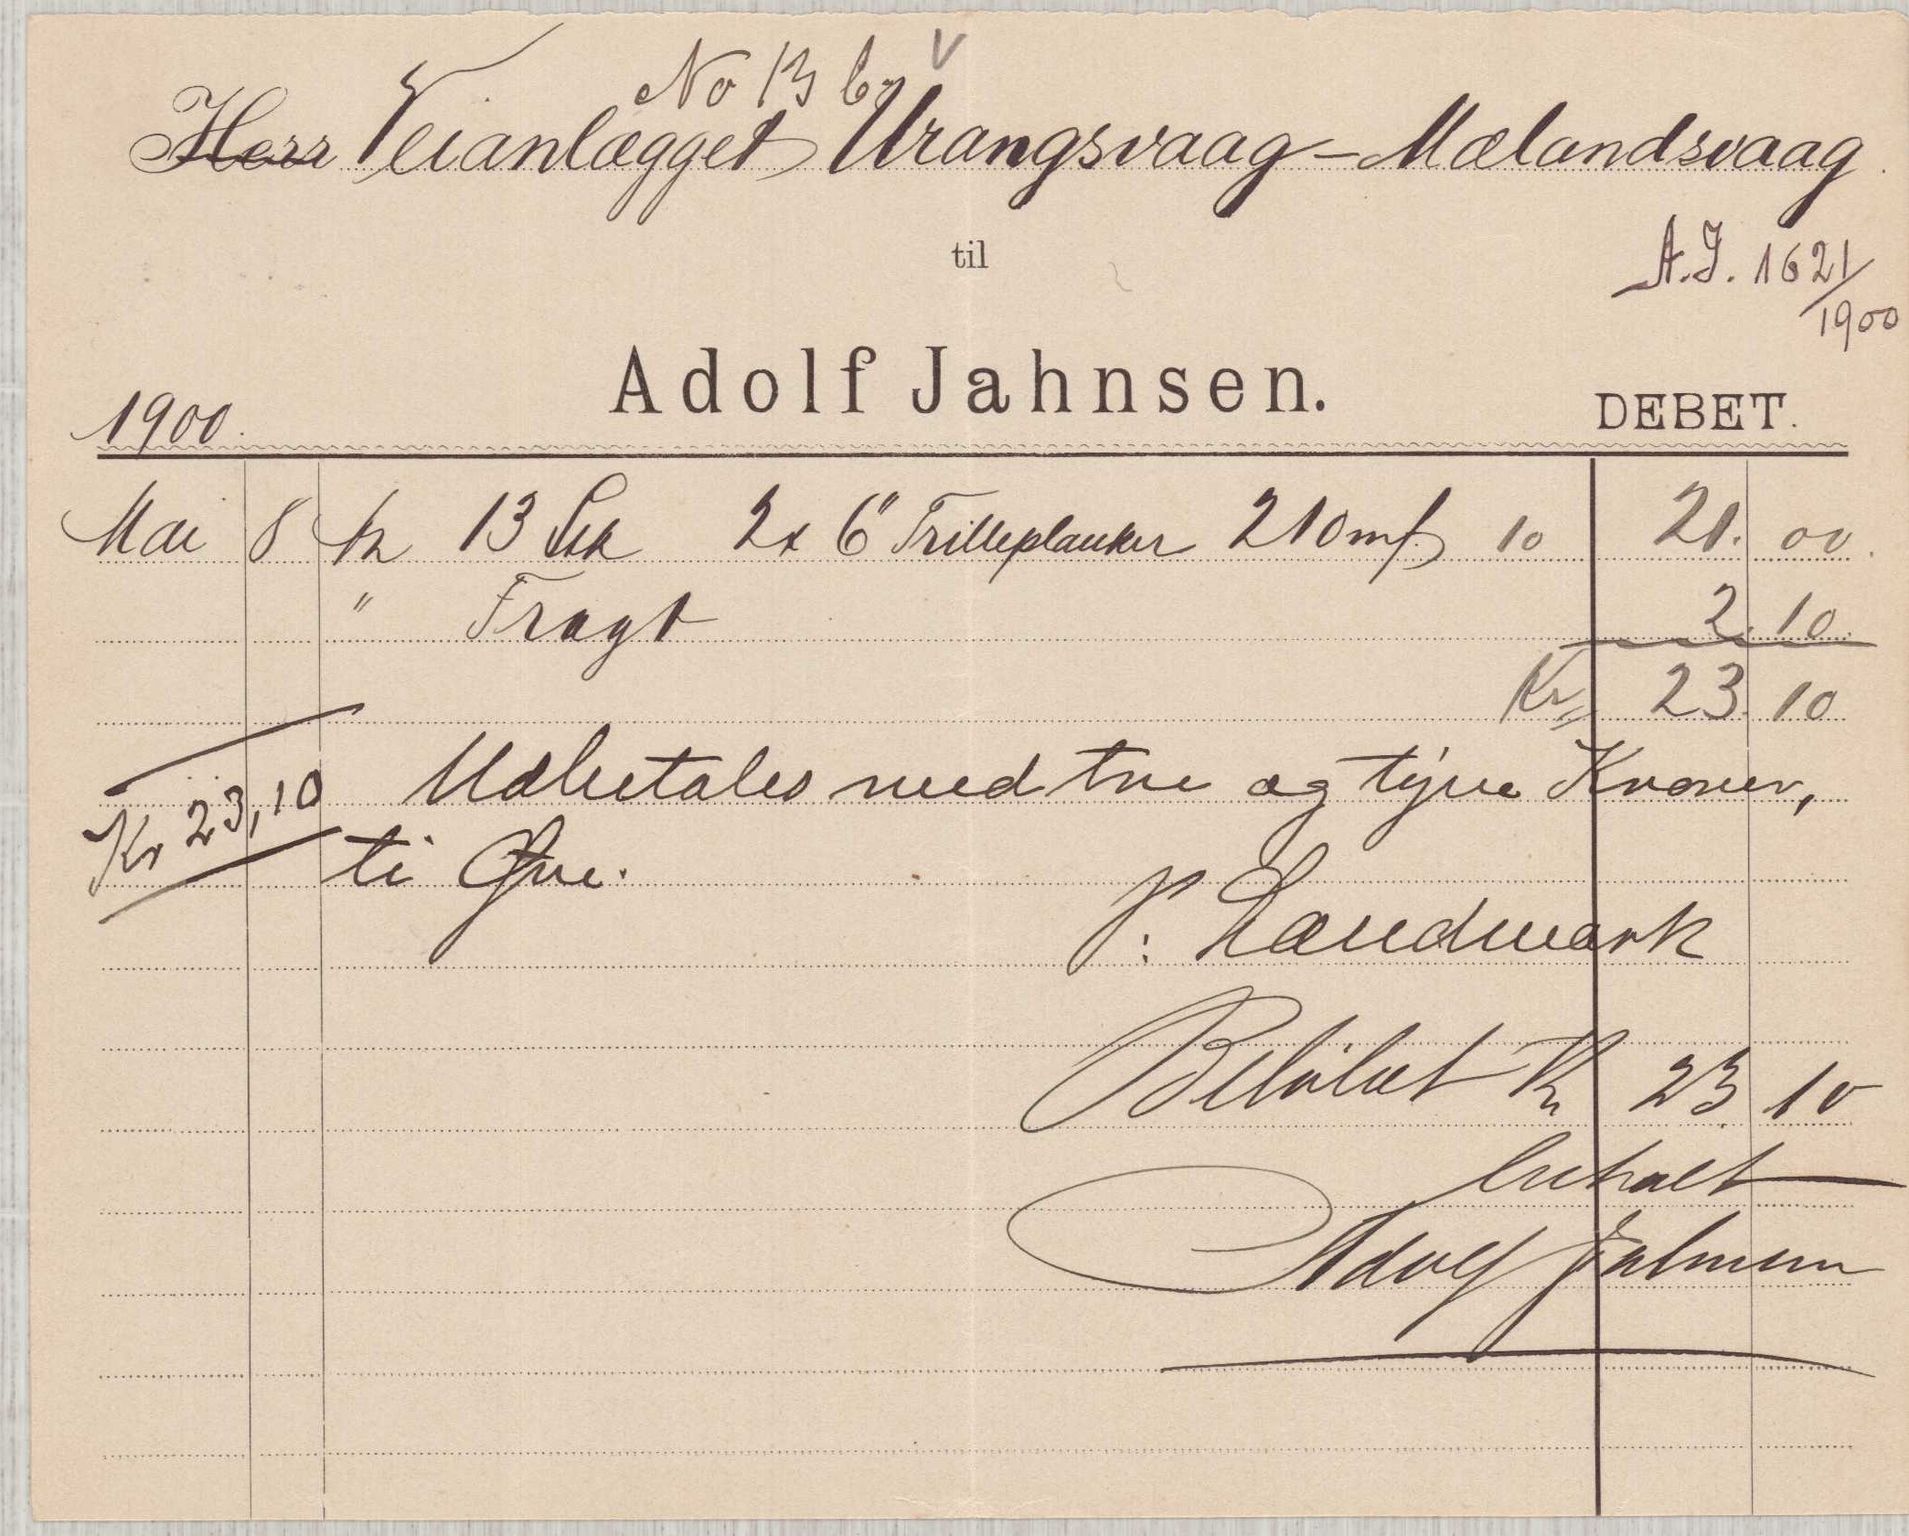 No 13 b. V
Herr Veianlægget Urangsvaag - Mælandsvaag
til
A.J. 1621/1900
Adolf Jahnsen.
1900.
DEBET.
Mai 8 pr 13 Stk 2 x 6" Trilleplanker 210 mf 10 21. 00.
" Fragt 2. 10.
Kr 23. 10
Kr 23,10 Udbetales med tre og tyve Kroner,
ti Øre.
P. Landmark
Beløbet Kr 23. 10
betalt
Adolf Jahnsen